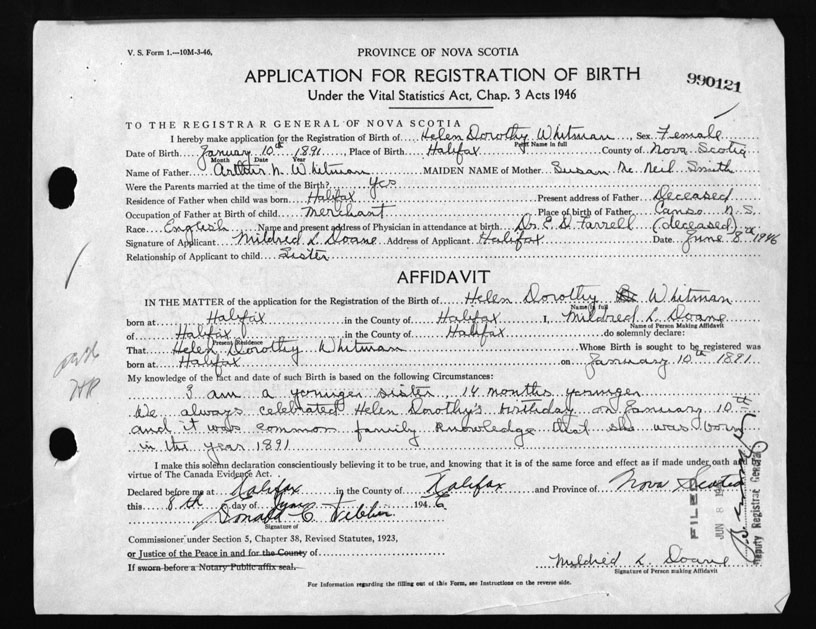 V. S. Form 1.—10M-3-46.
PROVINCE OF NOVA SCOTIA
APPLICATION FOR REGISTRATION OF BIRTH
990121
Under the Vital Statistics Act, Chap. 3 Acts 1946
TO THE REGISTRAR GENERAL OF NOVA SCOTIA
I hereby make application for the Registration of Birth of Helen Dorothy Whitman, Sex Female
Print Name in full
Date of Birth January 10th 1891, Place of Birth Halifax County of Nova Scotia
Month Date Year
Name of Father Arthur N. Whitman MAIDEN NAME of Mother Susan Mc Neil Smith
Were the Parents married at the time of the Birth? Yes
Residence of Father when child was born Halifax Present address of Father Deceased
Occupation of Father at Birth of child Merchant Place of birth of Father Canso N.S.
Race English Name and present address of Physician in attendance at birth Dr. E. D. Farrell (deceased)
Signature of Applicant Mildred L. Doane Address of Applicant Halifax Date June 8th 1946
Relationship of Applicant to child Sister
AFFIDAVIT
IN THE MATTER of the application for the Registration of Birth of Helen Dorothy Whitman
Name in full
born at Halifax in the County of Halifax I, Mildred L. Doane
Name of Person Making Affidavit
of Halifax in the County of Halifax do solemnly declare:
Present Residence
That Helen Dorothy Whitman Whose Birth is sought to be registered was
born at Halifax on January 10th 1891
My knowledge of the fact and date of such Birth is based on the following Circumstances:
I am a younger sister, 14 months younger
We always celebrated Helen Dorothy's birthday on January 10th
and it was common family knowledge that she was born
in the year 1891
I make this solemn declaration conscientiously believing it to be true, and knowing that it is of the same force and effect as if made under oath and
virtue of The Canada Evidence Act.
Declared before me at Halifax in the County of Halifax and Province of Nova Scotia
this 8th day of June 1946
Donald C.
Signature of
Commissioner under Section 5, Chapter 38, Revised Statutes, 1923,
or Justice of the Peace in and for the County of
If sworn before a Notary Public affix seal.
Mildred L. Doane
Signature of Person making Affidavit
FILED
JUN 8 19
Deputy Registrar General
For Information regarding the filling out of this Form, see Instructions on the reverse side.